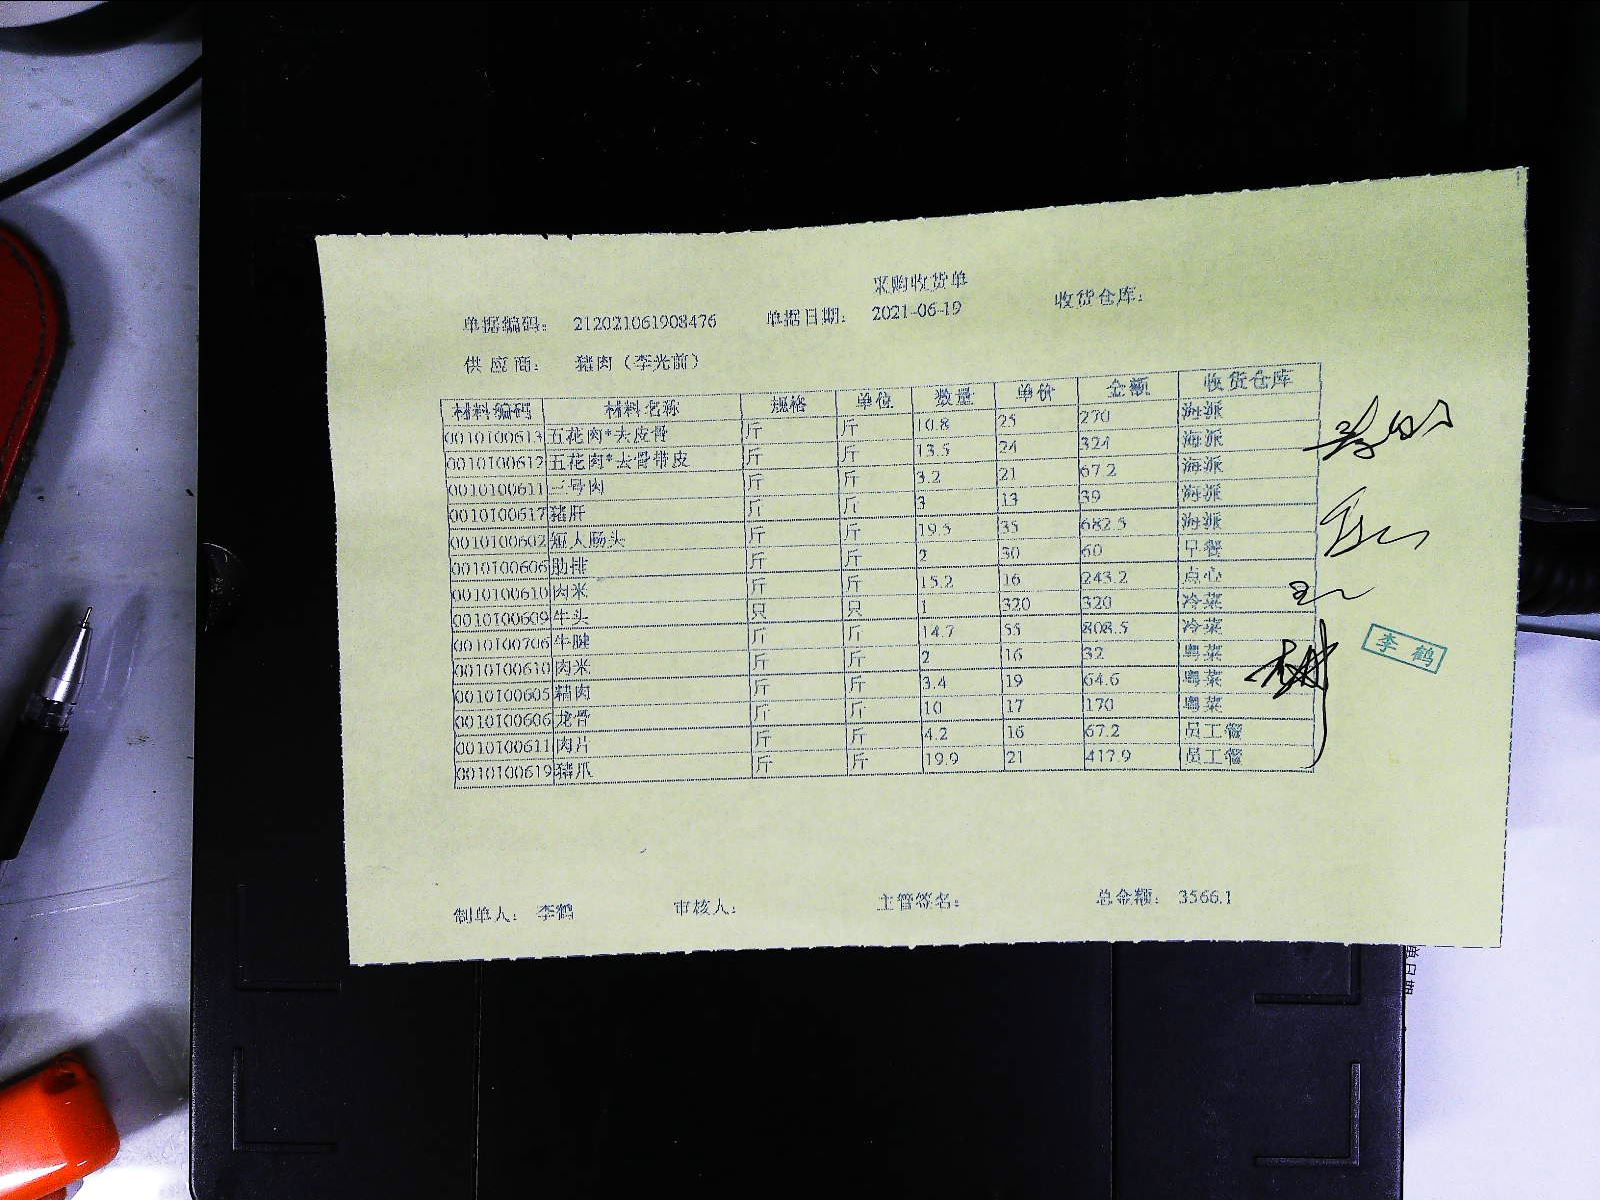 采购收货单
单据编码: 212021061908476 单据日期: 2021-06-19 收货仓库:
供应商: 猪肉(李光前)
材料编码 材料名称 规格 单位 数量 单价 金额 收货仓库
0010100613 五花肉*去皮骨 斤 斤 10.8 25 270 海派
0010100612 五花肉*去骨带皮 斤 斤 13.5 24 324 海派
0010100611 三号肉 斤 斤 3.2 21 67.2 海派
0010100617 猪肝 斤 斤 3 13 39 海派
0010100602 短人肠头 斤 斤 19.5 35 682.5 海派
0010100606 肋排 斤 斤 2 30 60 早餐
0010100610 肉米 斤 斤 15.2 16 243.2 点心
0010100609 牛头 只 只 1 320 320 冷菜
0010100706 牛腱 斤 斤 14.7 55 808.5 冷菜
0010100610 肉米 斤 斤 2 16 32 粤菜
0010100605 精肉 斤 斤 3.4 19 64.6 粤菜
0010100606 龙骨 斤 斤 10 17 170 粤菜
0010100611 肉片 斤 斤 4.2 16 67.2 员工餐
0010100619 猪爪 斤 斤 19.9 21 417.9 员工餐
李鹤
制单人: 李鹤 审核人: 主管签名: 总金额: 3566.1